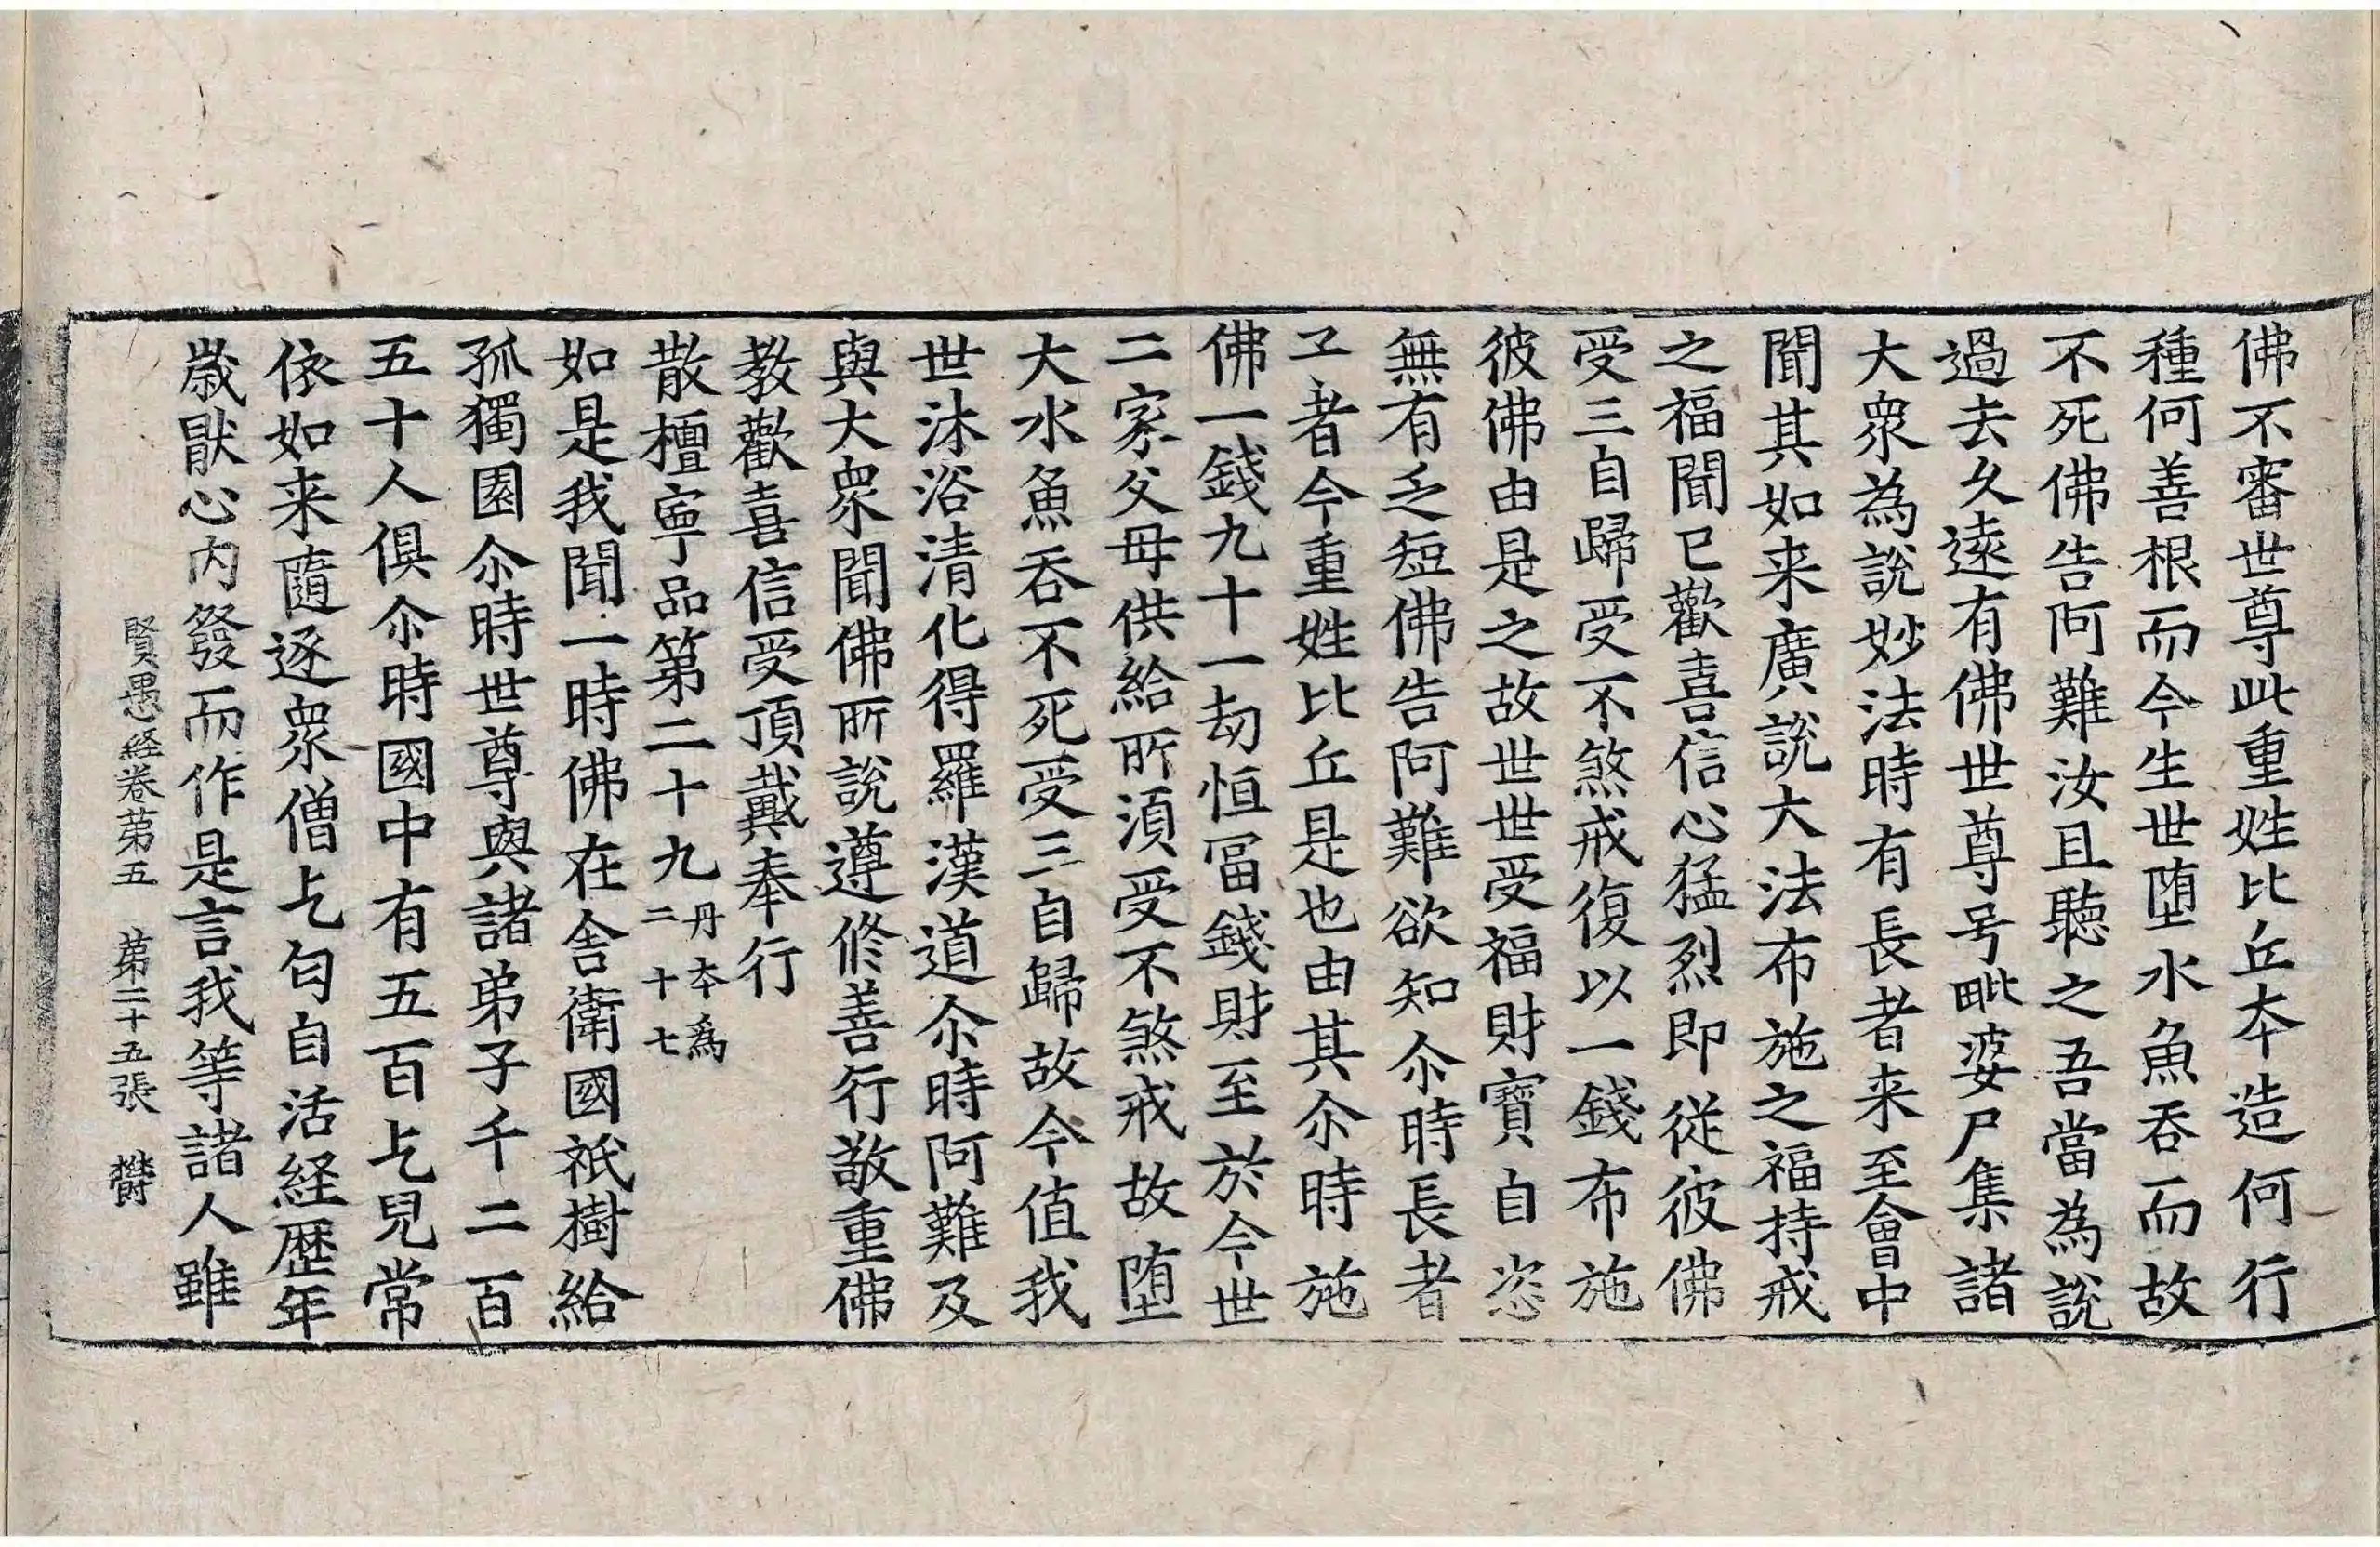 佛不審世尊此重姓比丘夲造何行
種何善根而今生世堕水魚吞而故
不死佛告阿難汝且聽之吾當為說
過去久遠有佛世尊号毗婆尸集諸
大衆為說妙法時有長者来至會中
聞其如来廣說大法布施之福持戒
之福聞已歡喜信心猛烈即從彼佛
受三自歸受不煞戒復以一錢布施
彼佛由是之故世世受福財寶自恣
無有乏短佛告阿難欲知尒時長者
子者今重姓比丘是也由其尒時施
佛一錢九十一劫恒冨錢財至於今世
二家父母供給所湏受不煞戒故堕
大水魚吞不死受三自歸故今值我
世沐浴清化得羅漢道尒時阿難及
與大衆聞佛所說遵修善行敬重佛
教歡喜信受頂戴奉行
散檀寧品第二十九丹夲爲二十七
如是我聞一時佛在舍衛國祇樹給
孤獨園尒時世尊與諸弟子千二百
五十人俱尒時國中有五百乞兒常
依如来隨逐衆僧乞匃自活経歴年
歳猒心内發而作是言我等諸人雖
賢愚経卷苐五　苐二十五張　欝